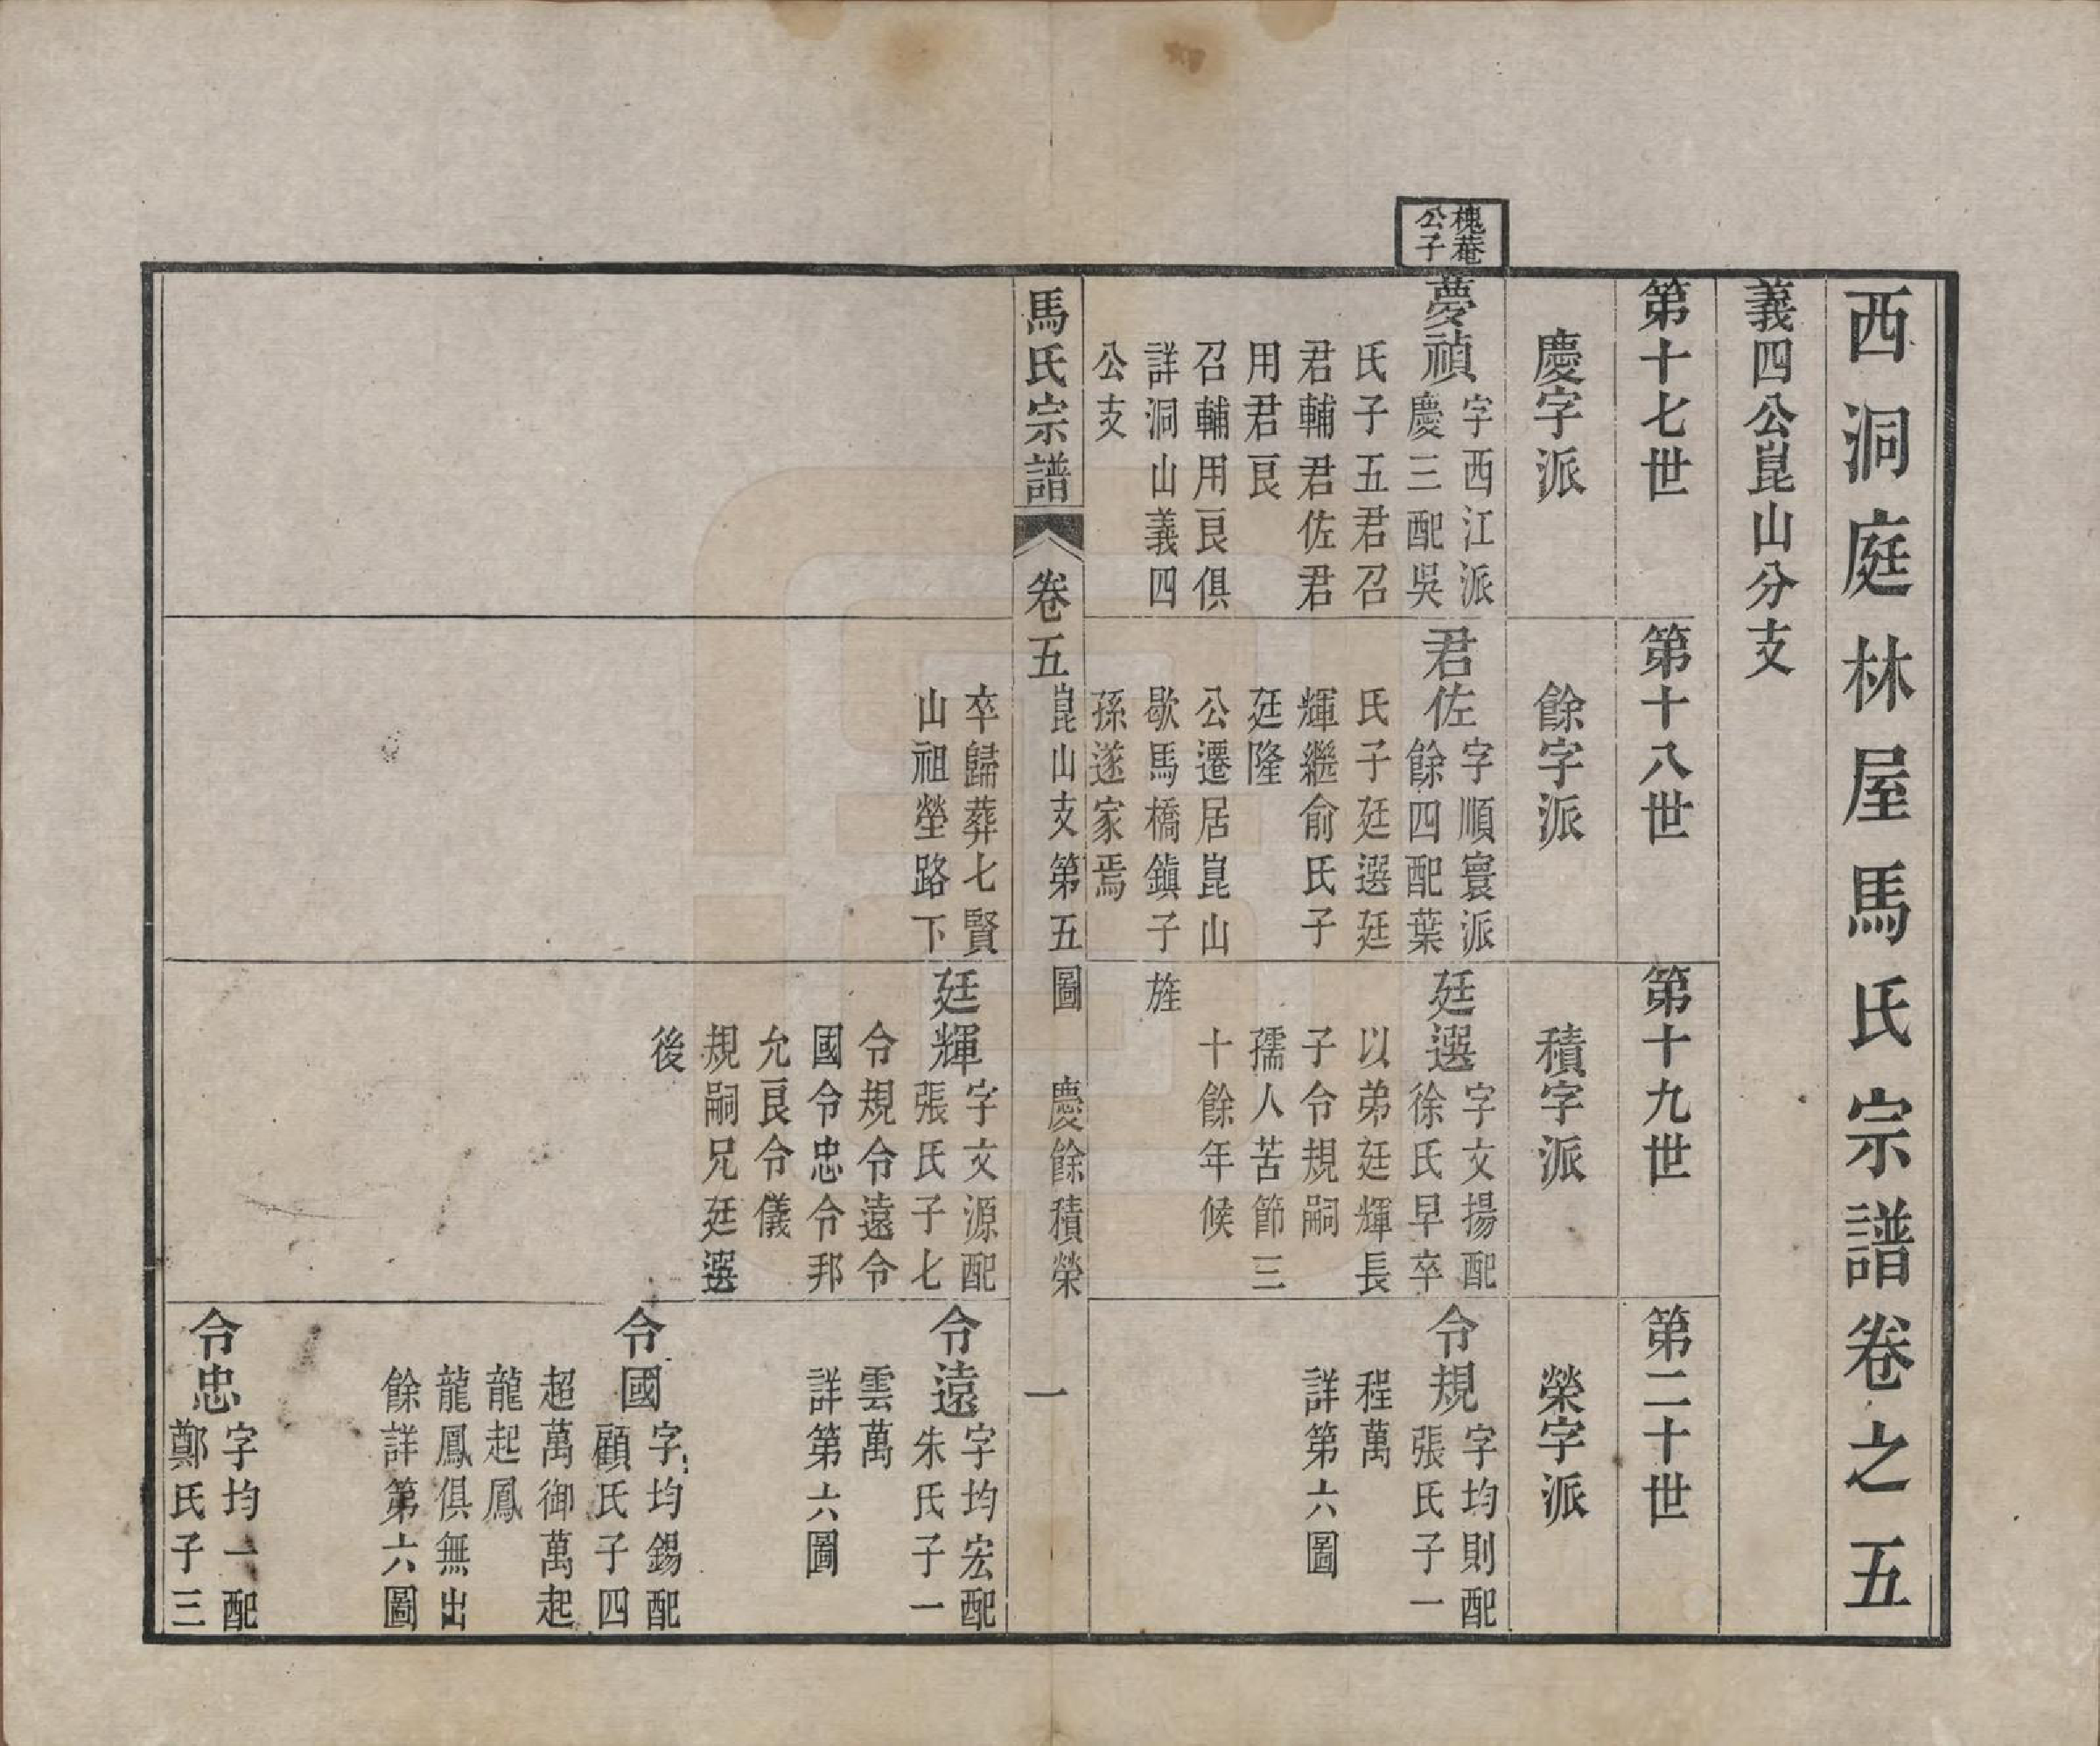 西洞庭林屋馬氏宗譜卷之五
義四公崑山分支
第十七世
第十八世
第十九世
第二十世
慶字派
餘字派
積字派
榮字派
槐菴
公子
夢禎
字西江派
慶三配吳
氏子五君召
君輔君佐君
用君良
召輔用良俱
詳洞山義四
公支
君佐
字順寰派
餘四配葉
氏子廷選廷
輝繼俞氏子
廷隆
公遷居崑山
歇馬橋鎮子
孫遂家焉
卒歸葬七賢
山祖塋路下
廷選
字文揚配
徐氏早卒
以弟廷輝長
子令規嗣
孺人苦節三
十餘年候
旌
令規
字均則配
張氏子一
程萬
詳第六圖
馬氏宗譜
卷五
崑山支第五圖
慶餘積榮
一
廷輝
字文源配
張氏子七
令規令遠令
國令忠令邦
允良令儀
規嗣兄廷選
後
令遠
字均宏配
朱氏子一
雲萬
詳第六圖
令國
字均錫配
顧氏子四
超萬御萬起
龍起鳳
龍鳳俱無出
餘詳第六圖
令忠
字均一配
鄭氏子三